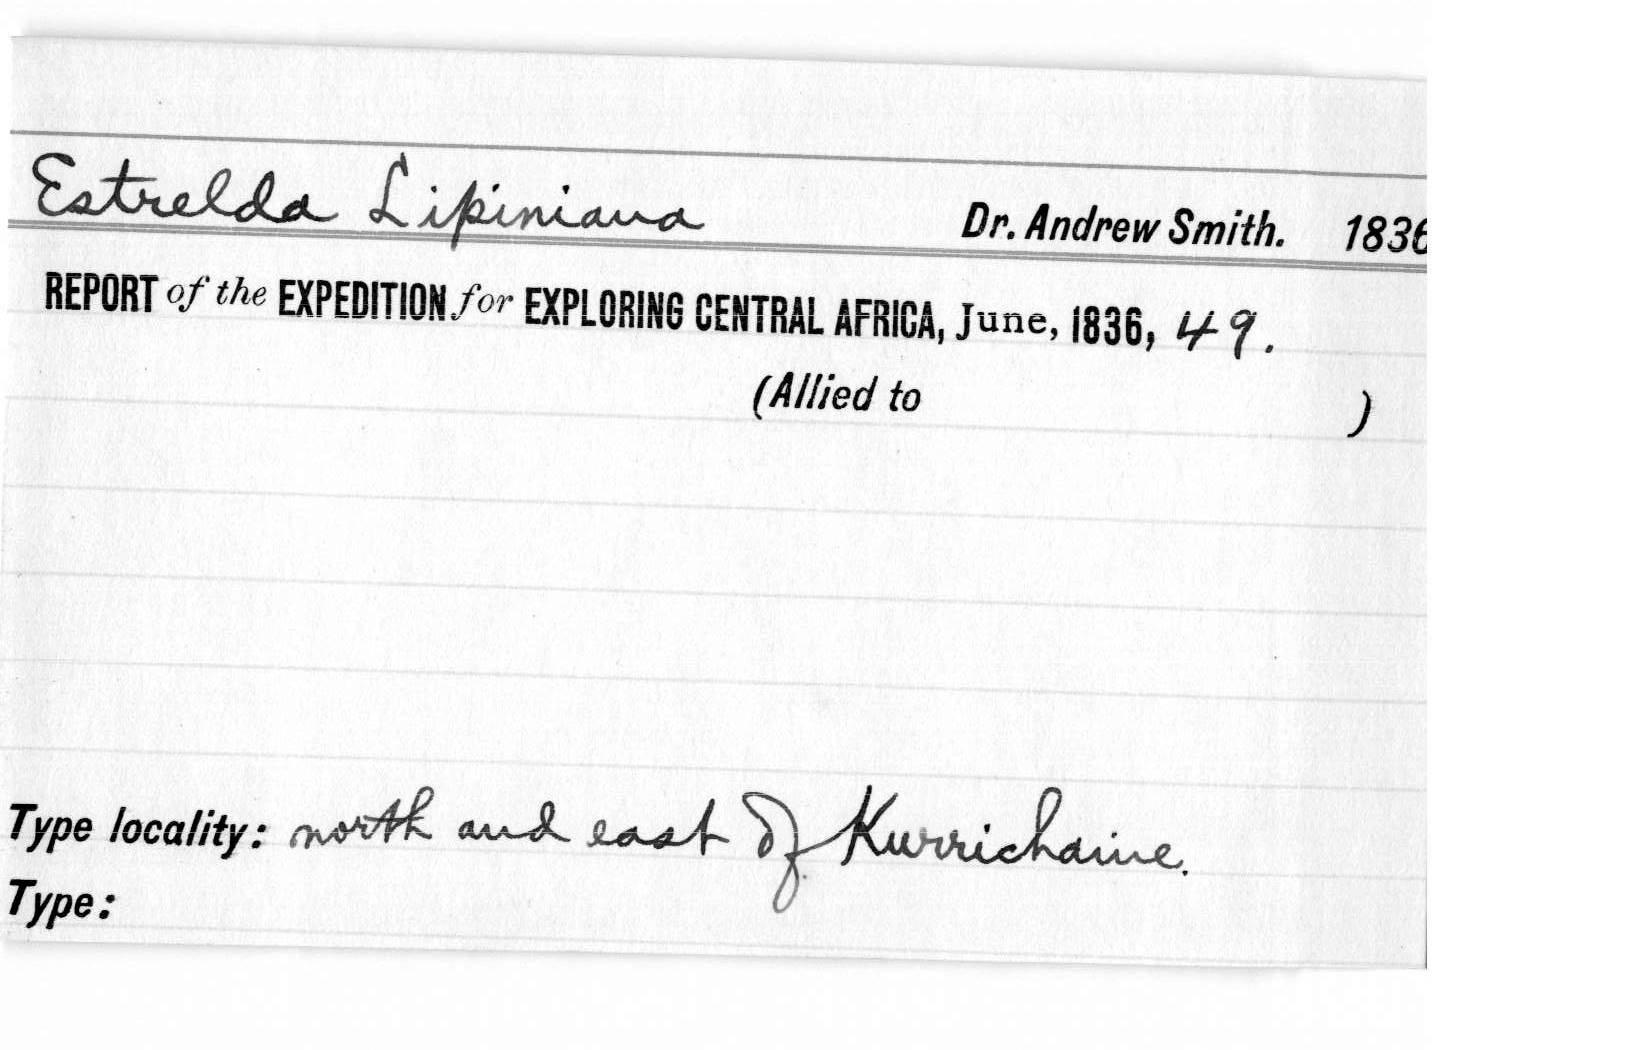 Estrelda Lipiniana Dr. Andrew Smith. 1836
REPORT of the EXPEDITION for EXPLORING CENTRAL AFRICA, June, 1836, 49.
(Allied to )
Type locality: north and east of Kurrichaine.
Type: